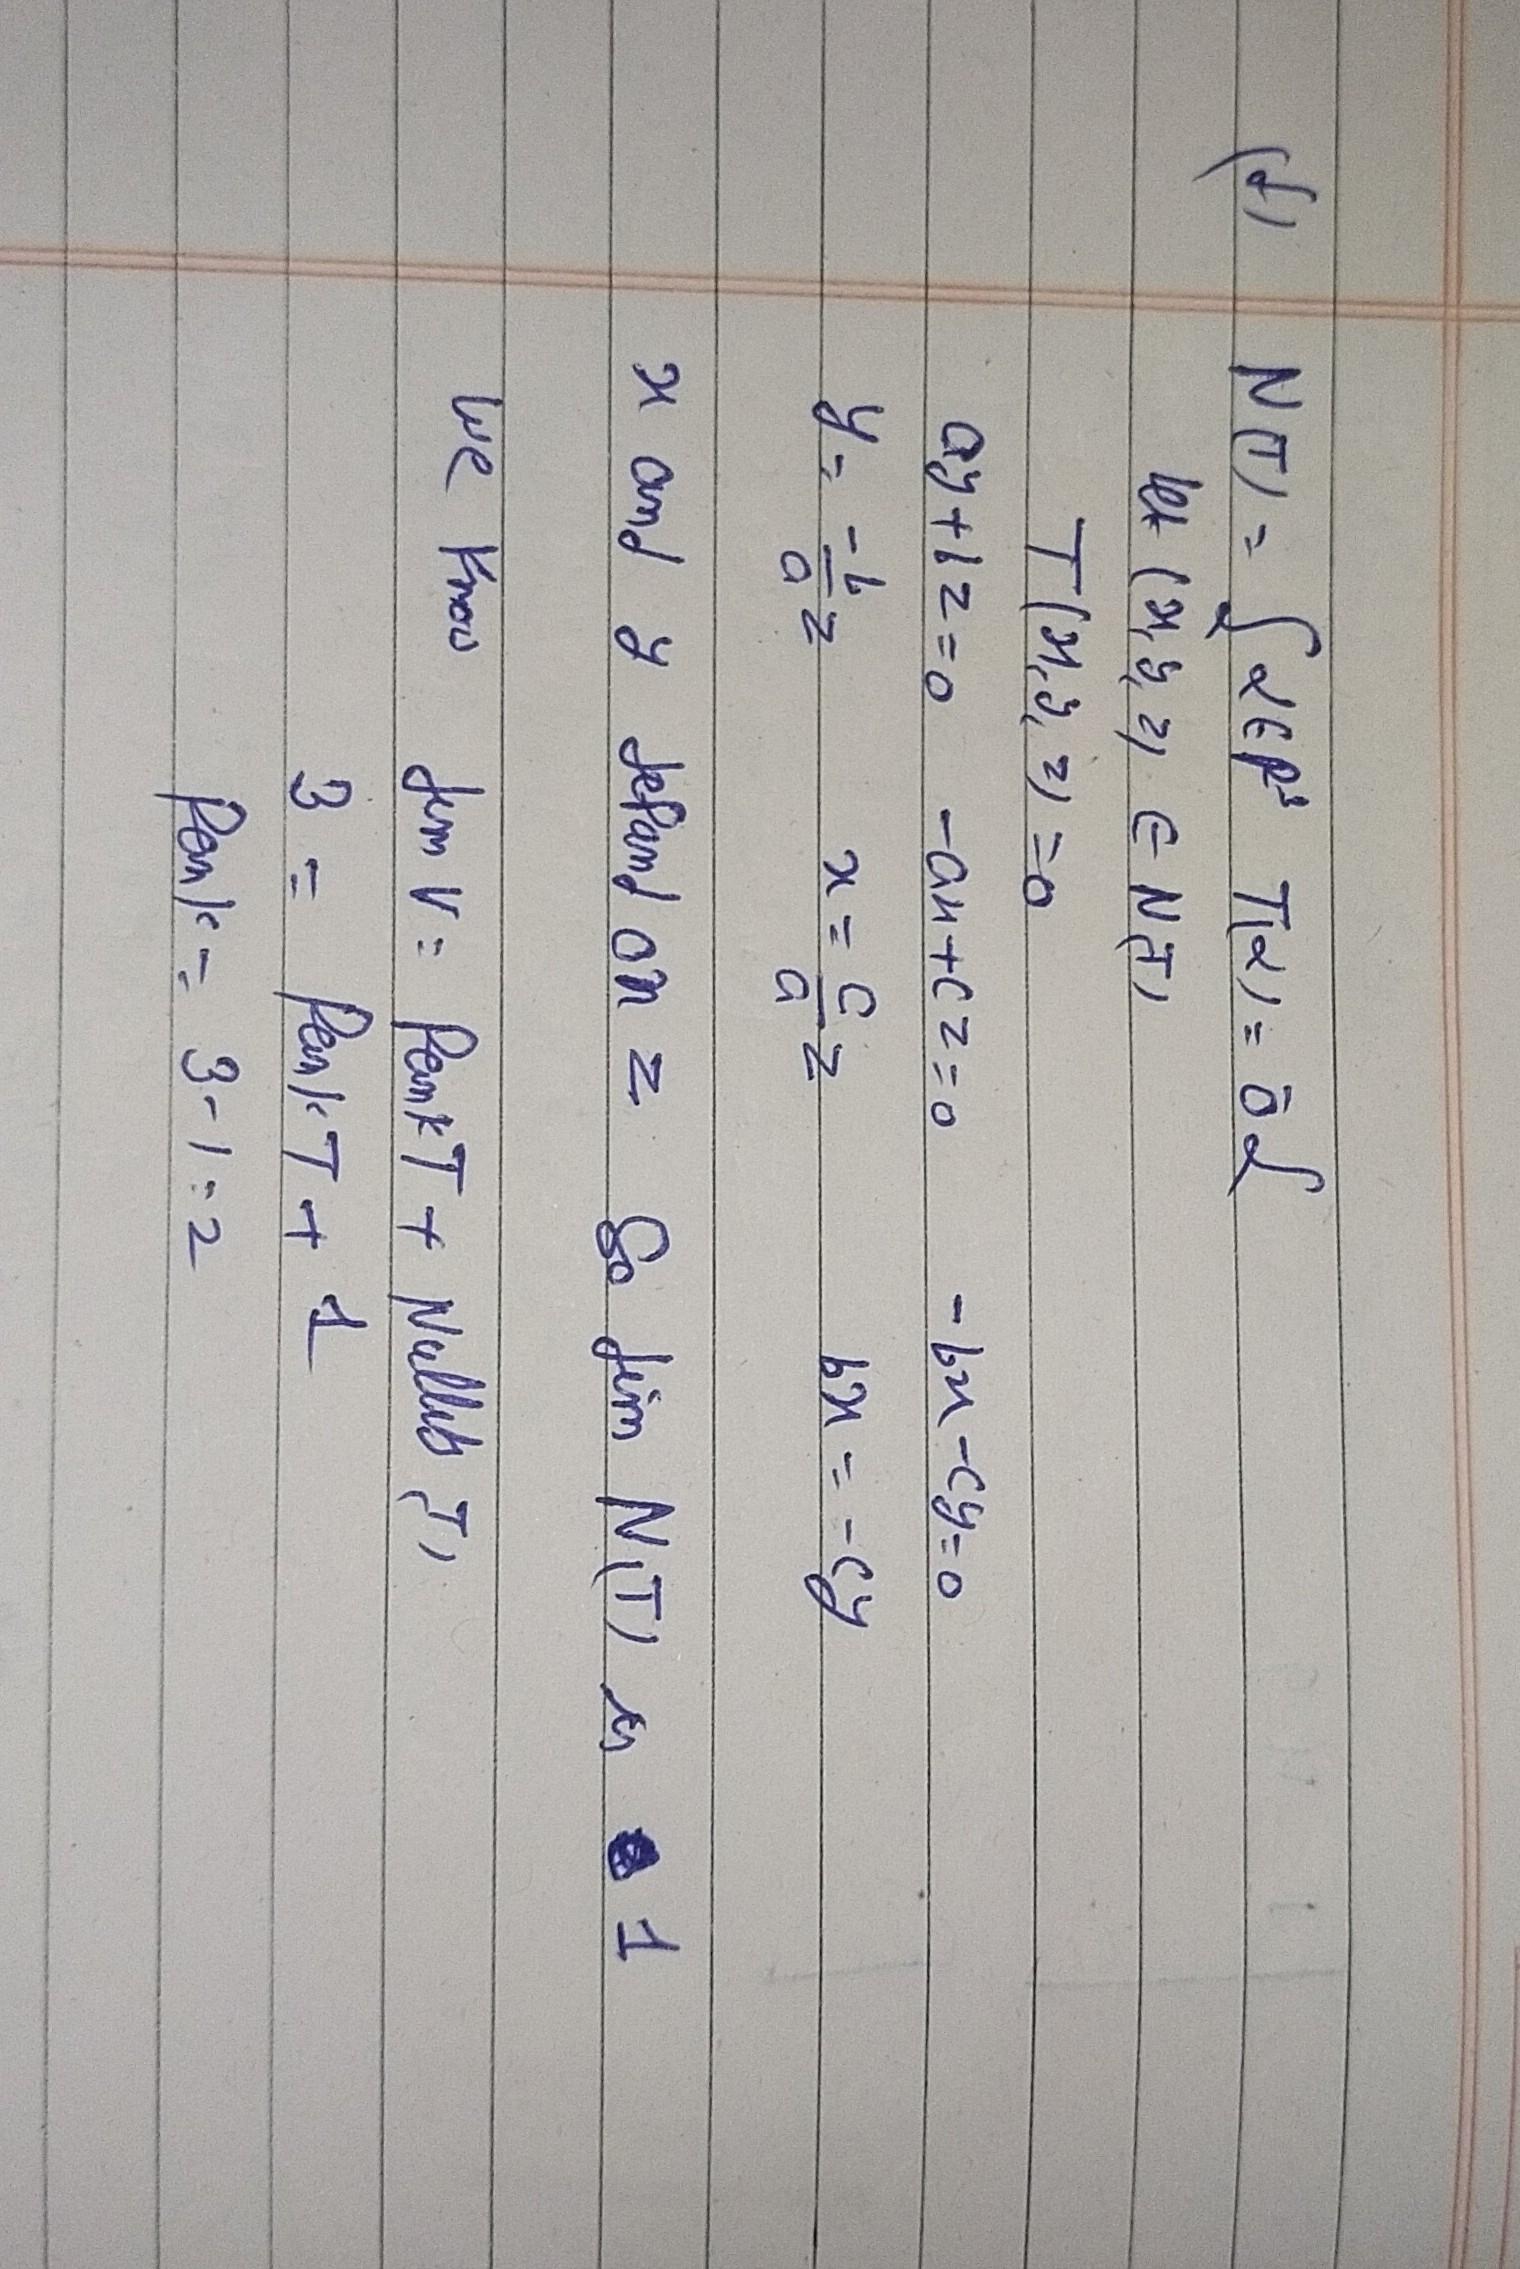 (f) N(T) = { α∈R³ T(α) = ō }
let (x, y, z) ∈ N(T)
T(x, y, z) = 0
ay+bz=0 -ax+cz=0 -bx-cy=0
y = -b/a z x = c/a z bx = -cy
x and y depand on z So dim N(T) is 1
we know dim V = Rank T + Nullity (T)
3 = Rank T + 1
Rank = 3-1 = 2